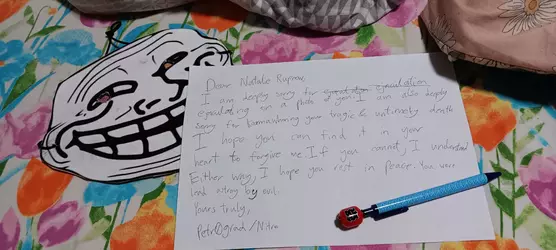 Dear Natalie Rupnow,
I am deeply sorry for ejaculation
ejaculating on a photo of you. I am also deeply
sorry for bemoaning your tragic & untimely death
I hope you can find it in your
heart to forgive me. If you cannot, I understand
Either way, I hope you rest in peace. You were
lead astray by evil.
Yours truly,
Petr0grad/Nitro